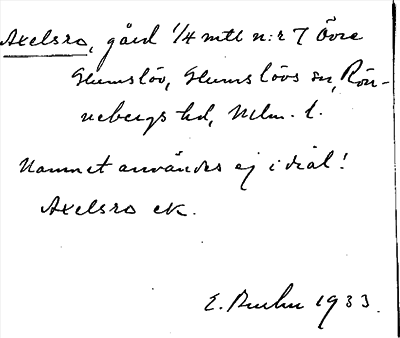 Axelsro, gård 1/4 mtl n:r 7 Övre
Glumslöv, Glumslövs sn, Rön-
nebergs hd, Mlm. l.
Namnet användes ej i dial!
Axelsro ek.
E. Bruhn 1933.